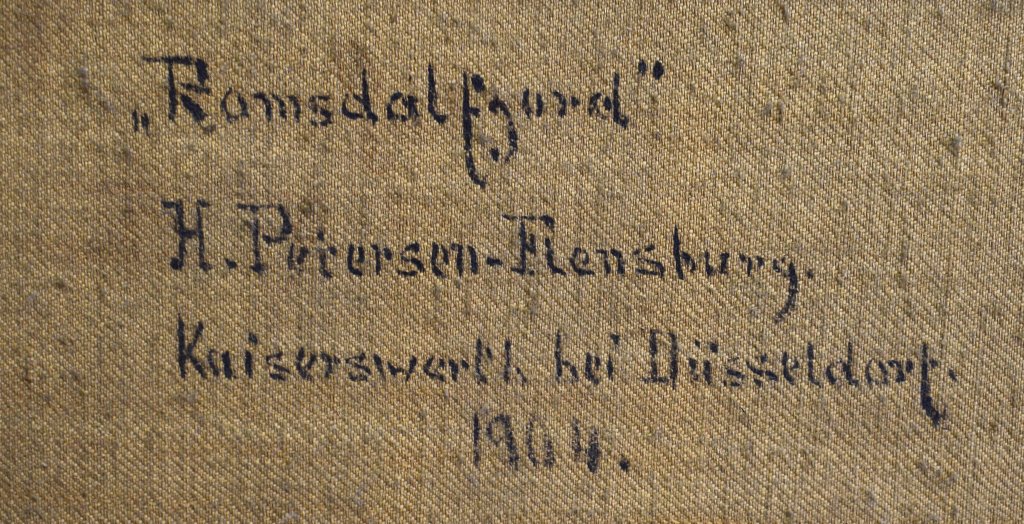 „Romsdalfjord“
H. Petersen-Flensburg.
Kaiserswerth bei Düsseldorf.
1904.